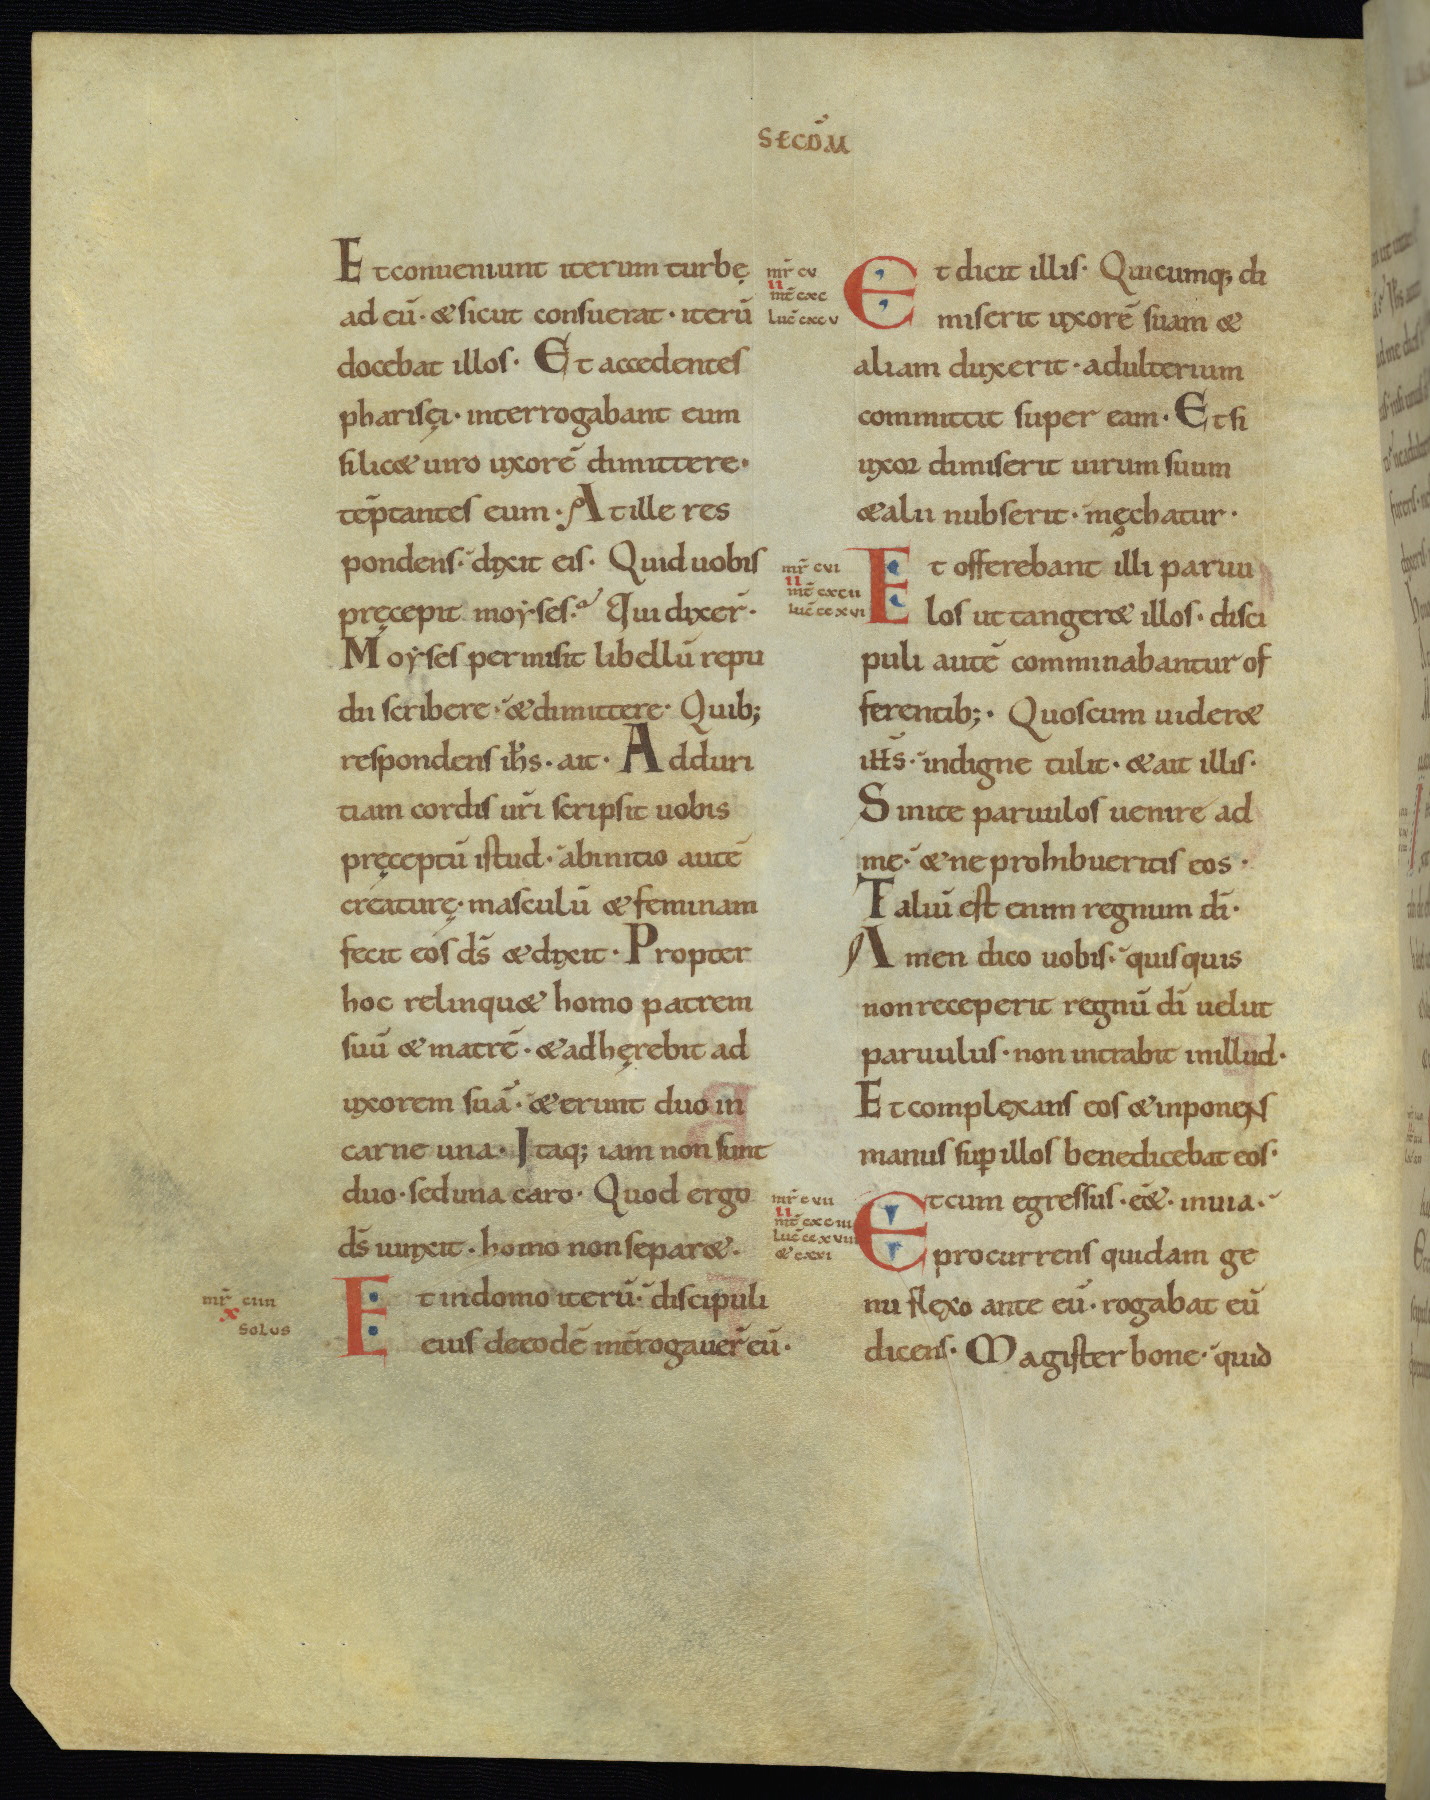 SECDM̄
Et conueniunt iterum turbę
ad eū· & sicut consuerat· iterū
docebat illos· Et accedentes
pharisęi· interrogabant eum
si lic& uiro uxorē dimittere·
tēptantes eum· At ille res
pondens· dixit eis· Quid uobis
pręcepit moẏses· Qui dixer̄·
Moẏses permisit libellū repu
dii scribere· & dimittere· Quib;
respondens ih̄s· ait· Adduri
tiam cordis ur̄i scripsit uobis
pręceptū istud· ab initio autē
creaturę· masculū & feminam
fecit eos d̄s & dixit· Propter
hoc relinqu& homo patrem
suū & matrē· & adhęrebit ad
uxorem suā· & erunt duo in
carne una· Itaq; iam non sunt
duo· sed una caro· Quod ergo
d̄s iunxit· homo non separ&·
mr̄ ciiii
x
solus
Et in domo iterū· discipuli
eius de eodē int̄rogauer̄ eū·
mr̄ cv
ii
mt̄ cxc
luc̄ cxcv
Et dicit illis· Quicumq; di
miserit uxorē suam &
aliam duxerit· adulterium
committit super eam· Et si
uxor dimiserit uirum suum
& alii nubserit· męchatur·
mr̄ cvi
ii
mt̄ cxcii
luc̄ ccxvi
Et offerebant illi paruu
los ut tanger& illos· disci
puli autē comminabantur of
ferentib;· Quos cum uider&
ih̄s· indigne tulit· & ait illis·
Sinite paruulos uenire ad
me· & ne prohibueritis eos·
Taliū est enim regnum dī·
Amen dico uobis· quisquis
non receperit regnū dī uelut
paruulus· non intrabit in illud·
Et complexans eos & inponens
manus sup̄ illos benedicebat eos·
mr̄ cvii
ii
mt̄ cxciii
luc̄ ccxviii
& cxxi
Et cum egressus· eē&· in uia·
procurrens quidam ge
nu flexo ante eū· rogabat eū
dicens· Magister bone· quid